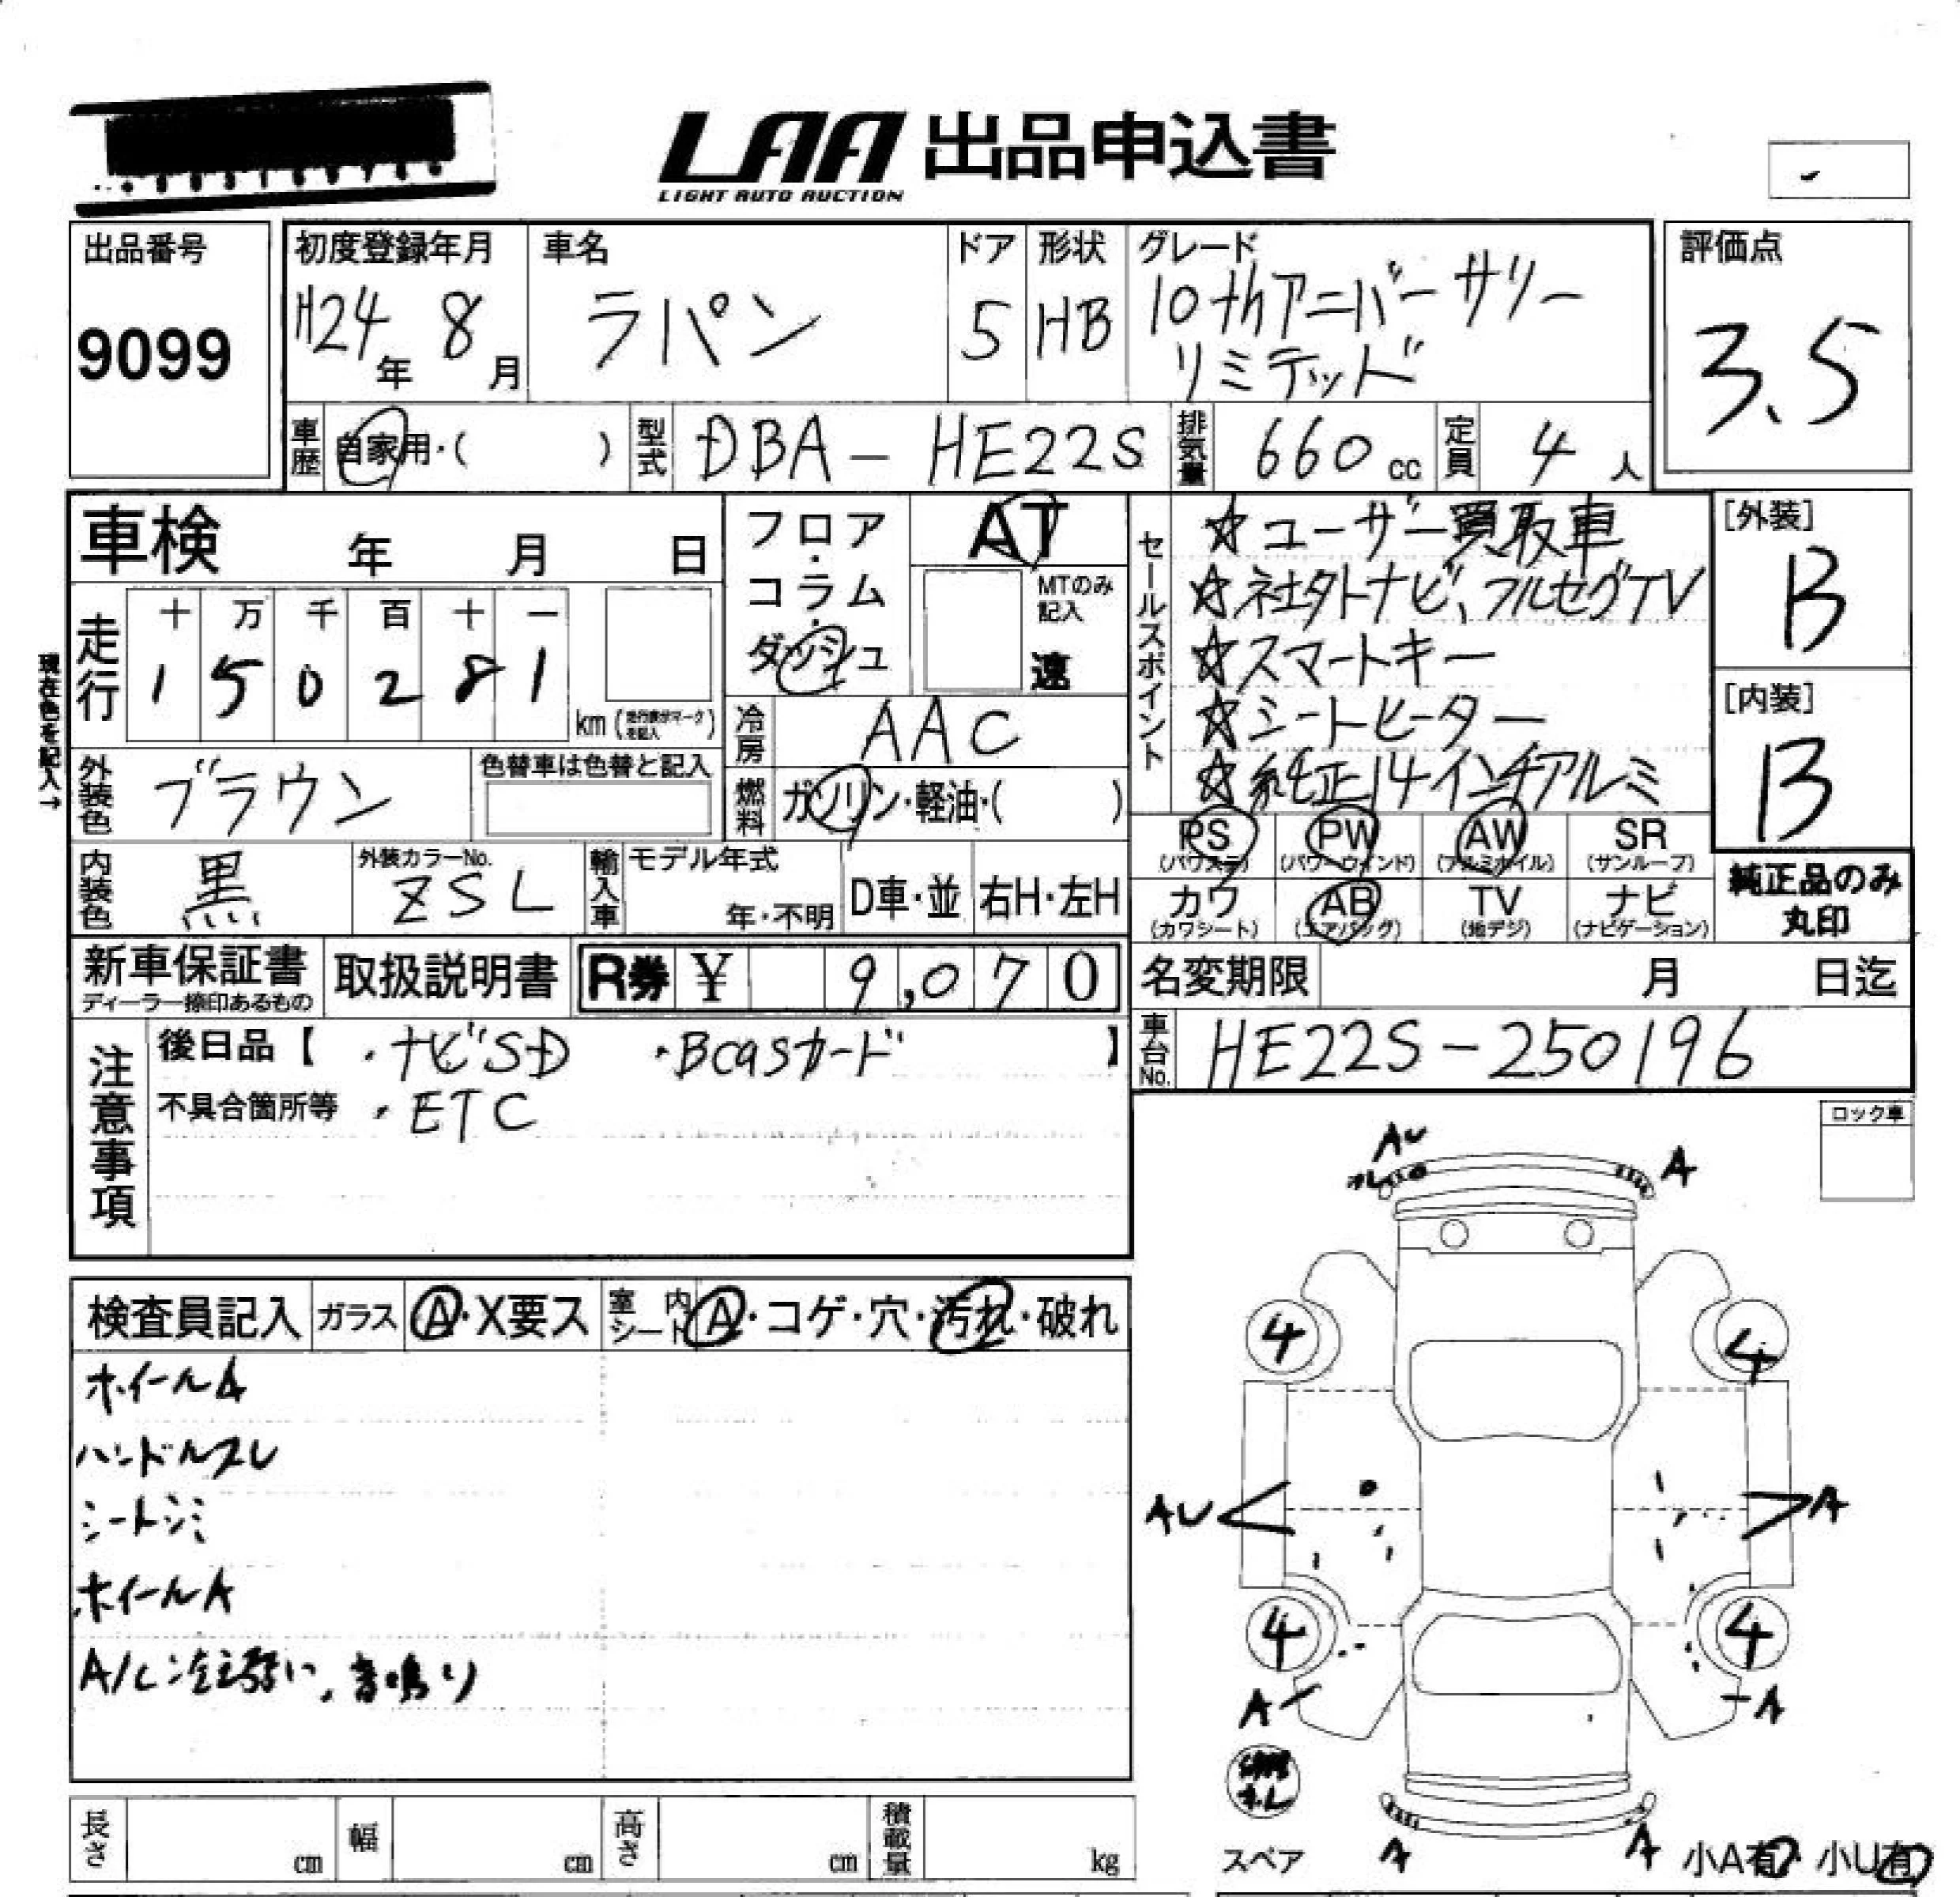 LAA 出品申込書
LIGHT AUTO AUCTION
出品番号
9099
初度登録年月
H24年 8月
車名
ラパン
ドア
5
形状
HB
グレード
10thアニバーサリー
リミテッド
評価点
3.5
車歴
自家用・( )
型式
DBA-HE22S
排気量
660cc
定員
4人
車検 年 月 日
フロア・コラム・ダッシュ
AT
MTのみ記入
速
セールスポイント
☆ユーザー買取車
☆社外ナビ、フルセグTV
☆スマートキー
☆シートヒーター
☆純正14インチアルミ
[外装]
B
[内装]
B
現在色を記入→
走行
十 万 千 百 十 一
1 5 0 2 8 1
km (走行表示マークを記入)
冷房
AAC
外装色
ブラウン
色替車は色替と記入
燃料
ガソリン・軽油・( )
内装色
黒
外装カラーNo.
ZSL
輸入車
モデル年式
年・不明
D車・並
右H・左H
PS (パワステ)
PW (パワーウィンド)
AW (アルミホイル)
SR (サンルーフ)
カワ (カワシート)
AB (エアバッグ)
TV (地デジ)
ナビ (ナビゲーション)
純正品のみ丸印
新車保証書
ディーラー捺印あるもの
取扱説明書
R券 ¥ 9,070
名変期限 月 日迄
車台No.
HE22S-250196
注意事項
後日品【 ・ナビSD ・Bcasカード 】
不具合箇所等 ・ETC
ロック車
AU
A
検査員記入
ガラス
A・X要ス
室内シート
A・コゲ・穴・汚れ・破れ
ホイールA
ハンドルスレ
シートシミ
ホイールA
A/C冷え弱い、音鳴り
4
4
AU
A
4
4
A
A
スペア
A
A
小A有・小U有
長さ cm
幅 cm
高さ cm
積載量 kg